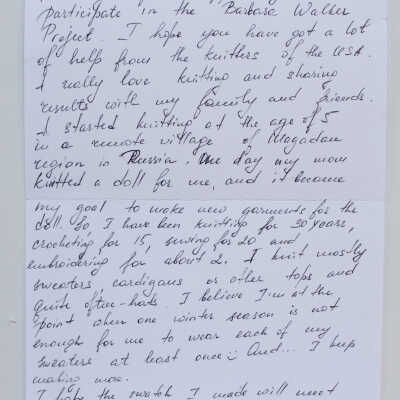 participate in the Barbara Walker
Project. I hope you have got a lot
of help from the knitters of the USA.
I really love knitting and sharing
results with my family and friends.
I started knitting at the age of 5
in a remote village of Magadan
region in Russia. One day my mom
knitted a doll for me, and it became
my goal to make new garments for the
doll. So, I have been knitting for 30 years,
crocheting for 15, sewing for 20 and
embroidering for about 2. I knit mostly
sweaters, cardigans or other tops and
quite often - hats. I believe I'm at the
point when one winter season is not
enough for me to wear each of my
sweaters at least once :) And... I keep
making more.
I hope the swatch I made will meet